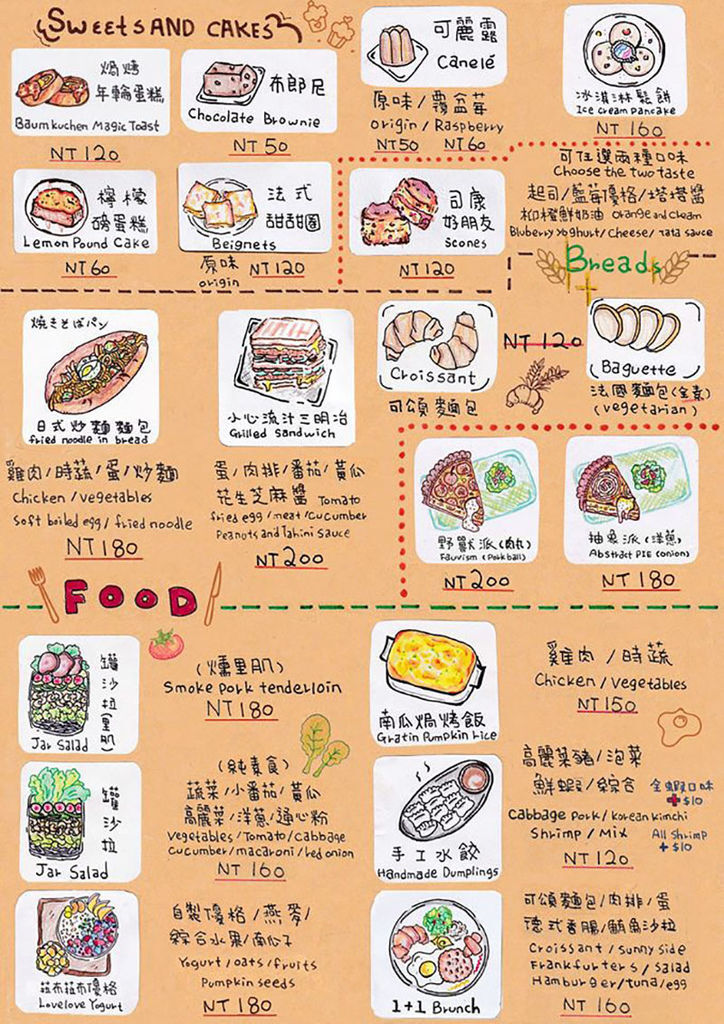 Sweets AND CAKES
焗烤
年輪蛋糕
Baumkuchen Magic Toast
NT 120
布郎尼
Chocolate Brownie
NT 50
可麗露
Canelé
原味/覆盆莓
origin / Raspberry
NT 50 NT 60
冰淇淋鬆餅
Ice cream pancake
NT 160
檸檬
磅蛋糕
Lemon Pound Cake
NT 60
法式
甜甜圈
Beignets
原味 NT 120
origin
司康
好朋友
Scones
NT 120
可任選兩種口味
Choose the two taste
起司/藍莓優格/塔塔醬
柳橙鮮奶油 orange and cream
Bluberry Yoghurt/Cheese/Tata sauce
Breads
焼きそばパン
日式炒麵麵包
fried noodle in bread
雞肉/時蔬/蛋/炒麵
Chicken/vegetables
Soft boiled egg/fried noodle
NT 180
小心流汁三明治
Grilled sandwich
蛋/肉排/番茄/黃瓜
花生芝麻醬 Tomato
fried egg/meat/cucumber
Peanuts and Tahini sauce
NT 200
Croissant
可頌麵包
NT 120
Baguette
法國麵包(全素)
(vegetarian)
野獸派(肉丸)
Fauvism (Porkball)
NT 200
抽象派(洋蔥)
Abstract PIE (onion)
NT 180
FOOD
罐沙拉(里肌)
Jar Salad
(燻里肌)
Smoke pork tenderloin
NT 180
南瓜焗烤飯
Gratin Pumpkin Rice
雞肉/時蔬
Chicken/vegetables
NT 150
罐沙拉
Jar Salad
(純素食)
蔬菜/小番茄/黃瓜
高麗菜/洋蔥/通心粉
vegetables/Tomato/cabbage
cucumber/macaroni/red onion
NT 160
手工水餃
Handmade Dumplings
高麗菜豬/泡菜
鮮蝦/綜合 全蝦口味
+$10
Cabbage pork/korean kimchi
Shrimp/Mix All shrimp
+$10
NT 120
菈布菈布優格
Lovelove Yogurt
自製優格/燕麥/
綜合水果/南瓜子
Yogurt/oats/fruits
Pumpkin seeds
NT 180
1+1 Brunch
可頌麵包/肉排/蛋
德式香腸/鮪魚沙拉
Croissant/sunny side
Frankfurters/salad
Hamburger/tuna/egg
NT 160